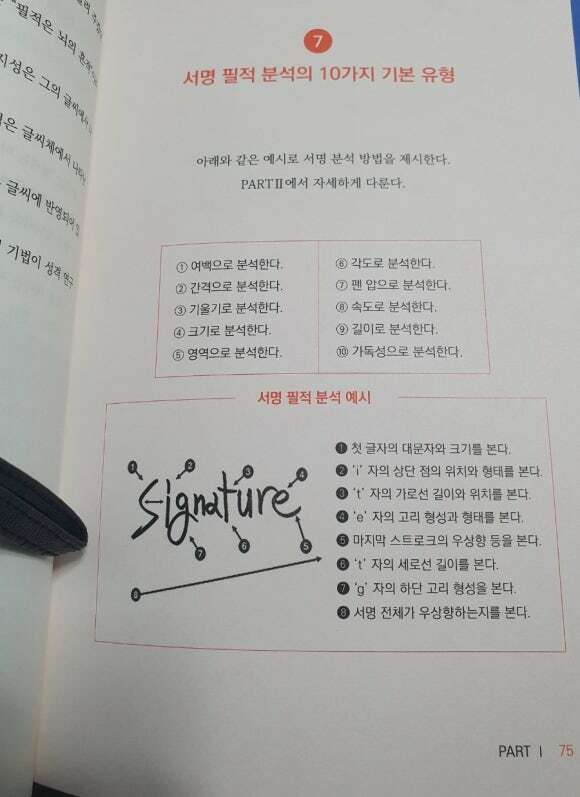 필적은 뇌의 흔적
지성은 그의 글씨에서
은 글씨체에서 나타난
글씨에 반영되어 있
기법이 성격 연구
7
서명 필적 분석의 10가지 기본 유형
아래와 같은 예시로 서명 분석 방법을 제시한다.
PART II에서 자세하게 다룬다.
① 여백으로 분석한다.
② 간격으로 분석한다.
③ 기울기로 분석한다.
④ 크기로 분석한다.
⑤ 영역으로 분석한다.
⑥ 각도로 분석한다.
⑦ 펜 압으로 분석한다.
⑧ 속도로 분석한다.
⑨ 길이로 분석한다.
⑩ 가독성으로 분석한다.
서명 필적 분석 예시
❶ ❷ ❸ ❹
Signature
❼ ❻ ❺
❽
❶ 첫 글자의 대문자와 크기를 본다.
❷ 'i' 자의 상단 점의 위치와 형태를 본다.
❸ 't' 자의 가로선 길이와 위치를 본다.
❹ 'e' 자의 고리 형성과 형태를 본다.
❺ 마지막 스트로크의 우상향 등을 본다.
❻ 't' 자의 세로선 길이를 본다.
❼ 'g' 자의 하단 고리 형성을 본다.
❽ 서명 전체가 우상향하는지를 본다.
PART I 75